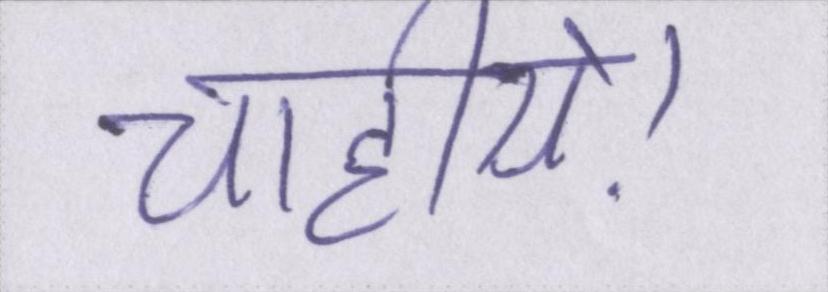 चाहीये!